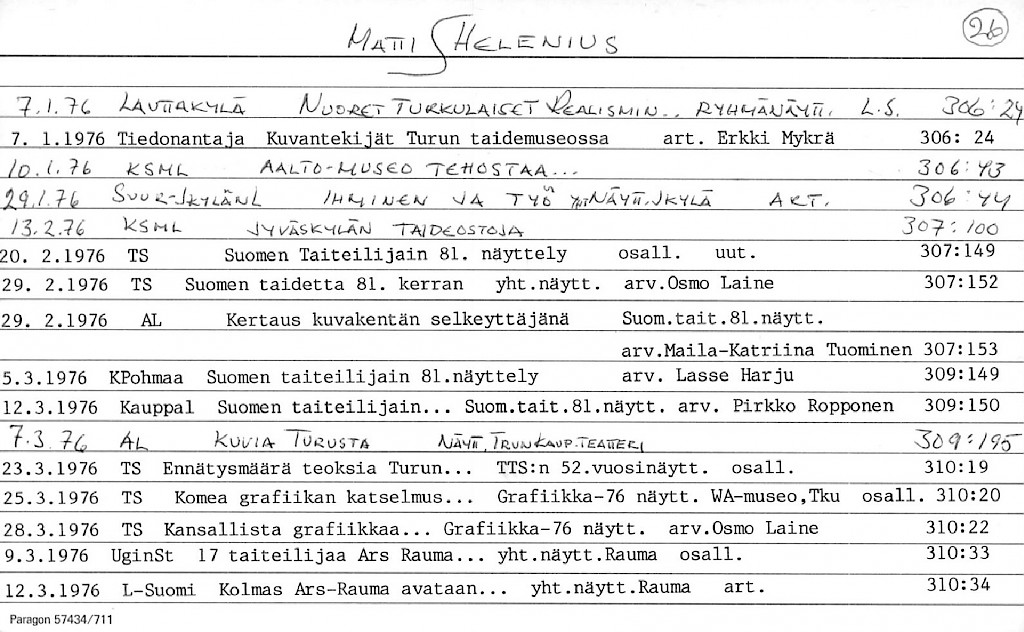 MATTI HELENIUS 26
7.1.76 LAUTTAKYLÄ NUORET TURKULAISET REALISMIN.. RYHMÄNÄYTT. L.S. 306:24
7. 1.1976 Tiedonantaja Kuvantekijät Turun taidemuseossa art. Erkki Mykrä 306: 24
10.1.76 KSML AALTO-MUSEO TEHOSTAA... 306:43
29.1.76 SUUR-JKYLÄNL IHMINEN JA TYÖ YHT.NÄYTT.JKYLÄ ART. 306:44
13.2.76 KSML JYVÄSKYLÄN TAIDEOSTOJA 307:100
20. 2.1976 TS Suomen Taiteilijain 81. näyttely osall. uut. 307:149
29. 2.1976 TS Suomen taidetta 81. kerran yht.näytt. arv.Osmo Laine 307:152
29. 2.1976 AL Kertaus kuvakentän selkeyttäjänä Suom.tait.81.näytt.
arv.Maila-Katriina Tuominen 307:153
5.3.1976 KPohmaa Suomen taiteilijain 81.näyttely arv. Lasse Harju 309:149
12.3.1976 Kauppal Suomen taiteilijain... Suom.tait.81.näytt. arv. Pirkko Ropponen 309:150
7.3.76 AL KUVIA TURUSTA NÄYTT. TRUN KAUP.TEATTERI 309:195
23.3.1976 TS Ennätysmäärä teoksia Turun... TTS:n 52.vuosinäytt. osall. 310:19
25.3.1976 TS Komea grafiikan katselmus... Grafiikka-76 näytt. WA-museo,Tku osall. 310:20
28.3.1976 TS Kansallista grafiikkaa... Grafiikka-76 näytt. arv.Osmo Laine 310:22
9.3.1976 UginSt 17 taiteilijaa Ars Rauma... yht.näytt.Rauma osall. 310:33
12.3.1976 L-Suomi Kolmas Ars-Rauma avataan... yht.näytt.Rauma art. 310:34
Paragon 57434/711